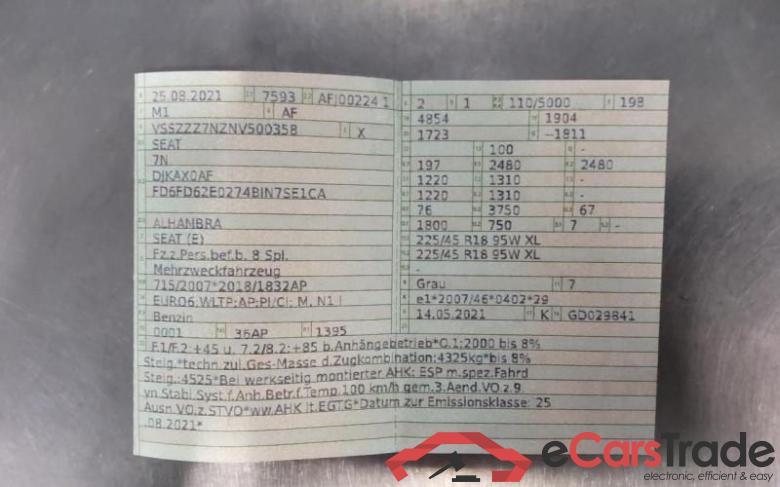 25.08.2021 7593 AFJ00224 1
M1 AF
VSSZZZ7NZNV500358 X
SEAT
7N
DJKAX0AF
FD6FD62E0274BIN7SE1CA
ALHAMBRA
SEAT (E)
Fz.z.Pers.bef.b. 8 Spl.
Mehrzweckfahrzeug
715/2007*2018/1832AP
EURO6;WLTP;AP;PI/CI; M, N1 I
Benzin
0001 36AP 1395
2 1 110/5000 198
4854 1904
1723 --1811
100 -
197 2480 2480
1220 1310 -
1220 1310 -
76 3750 67
1800 750 7 -
225/45 R18 95W XL
225/45 R18 95W XL
-
Grau 7
e1*2007/46*0402*29
14.05.2021 K GD029841
F.1/F.2 +45 u. 7.2/8.2:+85 b.Anhängebetrieb*O.1:2000 bis 8%
Steig.*techn.zul.Ges-Masse d.Zugkombination:4325kg*bis 8%
Steig.:4525*Bei werkseitig montierter AHK: ESP m.spez.Fahrd
yn Stabi.Syst.f.Anh.Betr.f.Temp.100 km/h gem.3.Aend.VO z.9
Ausn.VO.z.STVO*ww.AHK lt.EGTG*Datum zur Emissionsklasse: 25
.08.2021*
eCarsTrade
electronic, efficient & easy